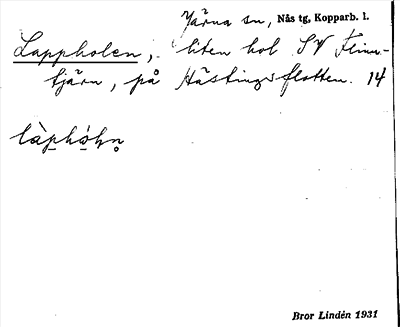 Järna sn, Nås tg, Kopparb. l.
Lappholen, liten hol SV Finn-
tjärn, på Hästingsflotten. 14
làphó̠hn̥
Bror Lindén 1931